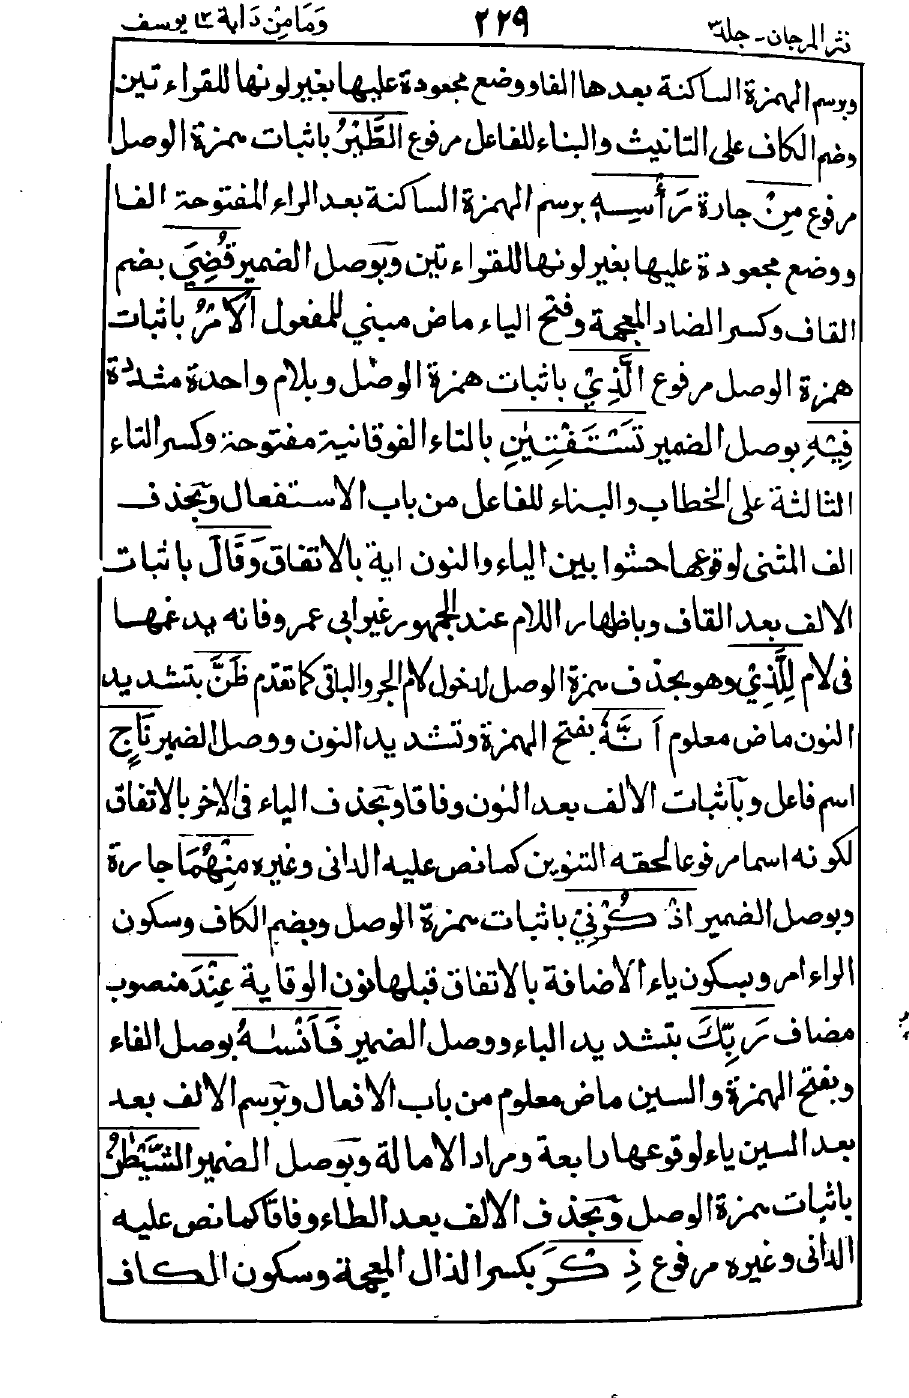 نثر المرجان - جلد ٣ ٢٢٩ وَمَا مِنْ دَابة ١٢ يوسف
وبرسم الهمزة الساكنة بعدها الفا ووضع مجعودة عليها بغير لونها للقراءتين
وضم الكاف على التانيث والبناء للفاعل مرفوع الطَّيْرُ باثبات همزة الوصل
مرفوع مِنْ جارة رَأْسِهٖ برسم الهمزة الساكنة بعد الراء المفتوحة الفا
ووضع مجعودة عليها بغير لونها للقراءتين وبوصل الضمير قُضِيَ بضم
القاف وكسر الضاد المعجمة وفتح الياء ماض مبني للمفعول الْاَمْرُ باثبات
همزة الوصل مرفوع الَّذِيْ باثبات همزة الوصل وبلام واحدة مشددة
فِيْهِ بوصل الضمير تَسْتَفْتِيٰنِ بالتاء الفوقانية مفتوحة وكسر التاء
الثالثة على الخطاب والبناء للفاعل من باب الاستفعال وبحذف
الف المثنى لوقوعها حشوا بين الياء والنون اية بالاتفاق وَقَالَ باثبات
الالف بعد القاف وباظهار اللام عند الجمهور غير ابى عمرو فانه يدغمها
فى لام لِلَّذِيْ وهو بحذف همزة الوصل لدخول لام الجر والباقى كما تقدم ظَنَّ بتشديد
النون ماض معلوم اَنَّهٗ بفتح الهمزة وتشديد النون ووصل الضمير نَاجٍ
اسم فاعل وبآثبات الالف بعد النون وفاقا وبحذف الياء فى الاخر بالاتفاق
لكونه اسما مرفوعا لحقه التنوين كما نص عليه الدانى وغيره مِنْهُمَا جارة
وبوصل الضمير اذْكُرْنِيْ باثبات همزة الوصل وبضم الكاف وسكون
الراء امر وبسكون ياء الاضافة بالاتفاق قبلها نون الوقاية عِنْدَ منصوب
مضاف رَبِّكَ بتشديد الباء ووصل الضمير فَاَنْسٰىهُ بوصل الفاء
وبفتح الهمزة والسين ماض معلوم من باب الافعال وبرسم الالف بعد
بعد السين ياء لوقوعها رابعة ومراد الامالة وبوصل الضمير الشَّيْطٰنُ
باثبات همزة الوصل وبحذف الالف بعد الطاء وفاقا كما نص عليه
الدانى وغيره مرفوع ذِكْرَ بكسر الذال المعجمة وسكون الكاف